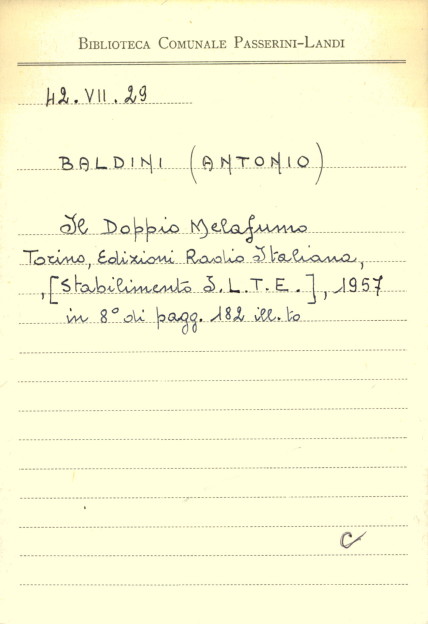 BIBLIOTECA COMUNALE PASSERINI-LANDI
42. VII. 29
BALDINI (ANTONIO)
Il Doppio Melafumo
Torino, Edizioni Radio Italiana,
, [Stabilimento I.L.T.E.], 1957
in 8° di pagg. 182 ill.to
C